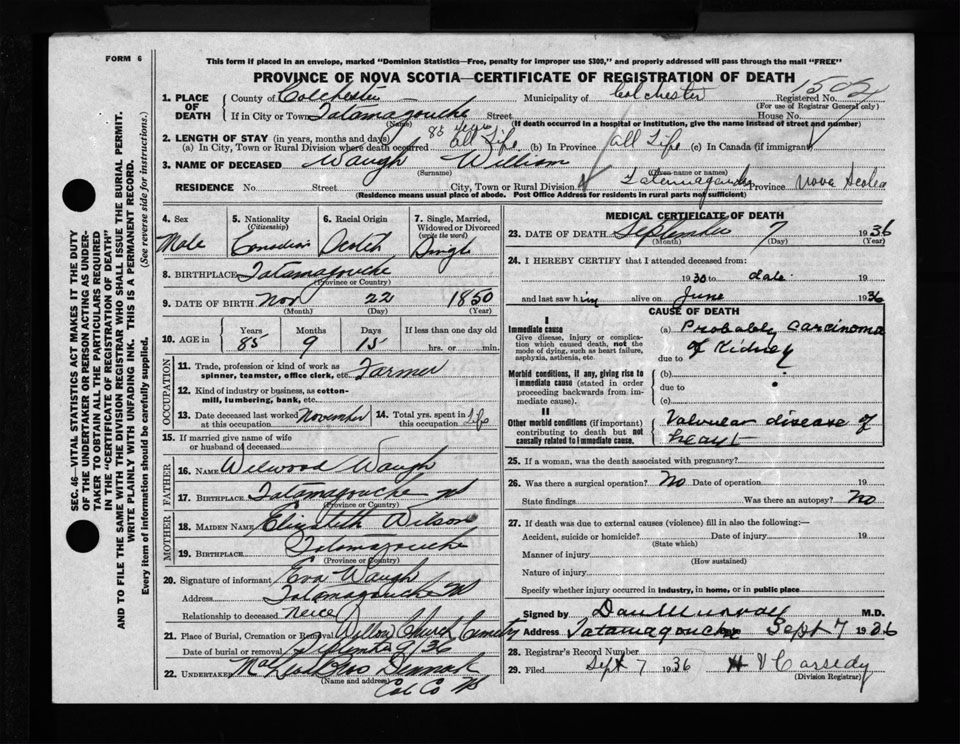 FORM 6
This form if placed in an envelope, marked "Dominion Statistics—Free, penalty for improper use $300," and properly addressed will pass through the mail "FREE"
PROVINCE OF NOVA SCOTIA—CERTIFICATE OF REGISTRATION OF DEATH
1. PLACE OF DEATH County of Colchester Municipality of Colchester Registered No. 1504
(For use of Registrar General only)
If in City or Town Tatamagouche Street House No.
(Name) (If death occurred in a hospital or institution, give the name instead of street and number)
2. LENGTH OF STAY (in years, months and days) 85 years
(a) In City, Town or Rural Division where death occurred All Life (b) In Province All Life (c) In Canada (if immigrant)
3. NAME OF DECEASED Waugh William
(Surname) (Given name or names)
RESIDENCE No. Street City, Town or Rural Division Tatamagouche Province Nova Scotia
(Residence means usual place of abode. Post Office Address for residents in rural parts not sufficient)
4. Sex 5. Nationality (Citizenship) 6. Racial Origin 7. Single, Married, Widowed or Divorced (write the word)
Male Canadian Scotch Single
8. BIRTHPLACE Tatamagouche
(Province or Country)
9. DATE OF BIRTH Nov 22 1850
(Month) (Day) (Year)
10. AGE in Years Months Days If less than one day old
85 9 15 hrs. or min.
OCCUPATION
11. Trade, profession or kind of work as spinner, teamster, office clerk, etc. Farmer
12. Kind of industry or business, as cotton-mill, lumbering, bank, etc.
13. Date deceased last worked at this occupation November 14. Total yrs. spent in this occupation Life
15. If married give name of wife or husband of deceased
FATHER
16. NAME Welwood Waugh
17. BIRTHPLACE Tatamagouche NS
(Province or Country)
MOTHER
18. MAIDEN NAME Elizabeth Wilson
19. BIRTHPLACE Tatamagouche
(Province or Country)
20. Signature of informant Eva Waugh
Address Tatamagouche NS
Relationship to deceased neice
21. Place of Burial, Cremation or Removal Willow Church Cemetry
Date of burial or removal September 9/36
22. UNDERTAKER
(Name and address)
Col Co NS
MEDICAL CERTIFICATE OF DEATH
23. DATE OF DEATH September 7 1936
(Month) (Day) (Year)
24. I HEREBY CERTIFY that I attended deceased from:
1930 to date 19
and last saw him alive on June 1936
CAUSE OF DEATH
I
Immediate cause (a) Probably carcinoma
Give disease, injury or complication which caused death, not the mode of dying, such as heart failure, asphyxia, asthenia, etc. of Kidney
due to
Morbid conditions, if any, giving rise to immediate cause (stated in order proceeding backwards from immediate cause). (b)
due to
(c)
II
Other morbid conditions (if important) contributing to death but not causally related to immediate cause. Valvular disease of heart
25. If a woman, was the death associated with pregnancy?
26. Was there a surgical operation? No Date of operation 19
State findings Was there an autopsy? No
27. If death was due to external causes (violence) fill in also the following:—
Accident, suicide or homicide? Date of injury 19
(State which)
Manner of injury
(How sustained)
Nature of injury
Specify whether injury occurred in industry, in home, or in public place
Signed by Dan Murray M.D.
Address Tatamagouche Sept 7 1936
28. Registrar's Record Number
29. Filed Sept 7 1936 H V Cassedy
(Division Registrar)
SEC. 46—VITAL STATISTICS ACT MAKES IT THE DUTY
OF THE UNDERTAKER OR PERSON ACTING AS UNDER-
TAKER TO OBTAIN ALL THE PARTICULARS REQUIRED
IN THE "CERTIFICATE OF REGISTRATION OF DEATH"
AND TO FILE THE SAME WITH THE DIVISION REGISTRAR WHO SHALL ISSUE THE BURIAL PERMIT.
WRITE PLAINLY WITH UNFADING INK. THIS IS A PERMANENT RECORD.
Every item of information should be carefully supplied. (See reverse side for instructions.)